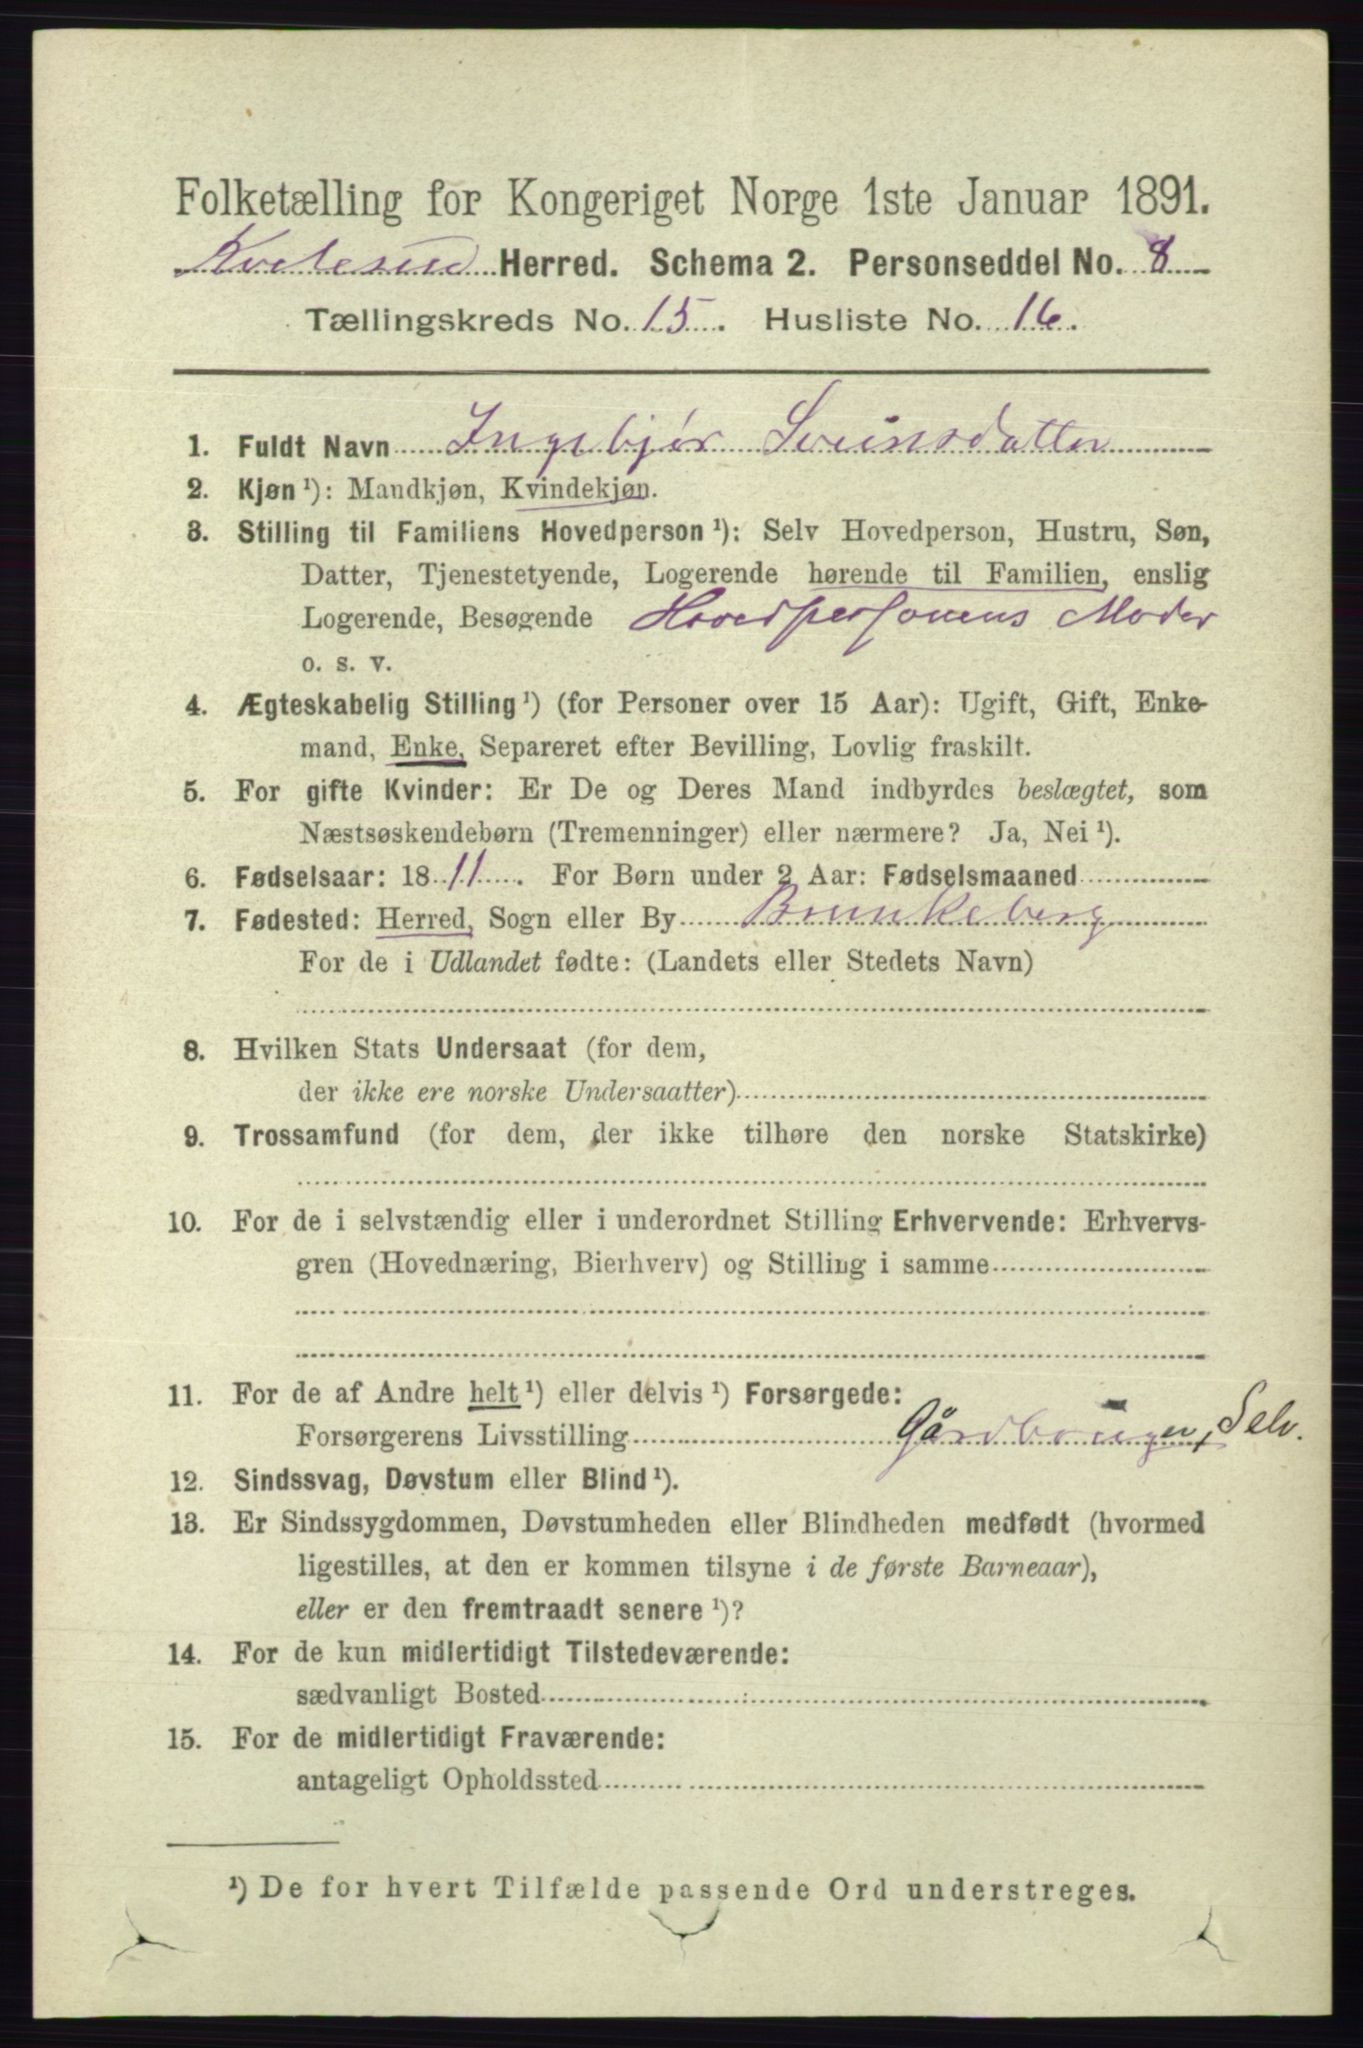 Folketælling for Kongeriget Norge 1ste Januar 1891.
Herred. Schema 2. Personseddel No. 8
Tællingskreds No. 15. Husliste No. 16.
1. Fuldt Navn Ingebjør Sveinsdatter
2. Kjøn ¹): Mandkjøn, Kvindekjøn.
3. Stilling til Familiens Hovedperson ¹): Selv Hovedperson, Hustru, Søn,
Datter, Tjenestetyende, Logerende hørende til Familien, enslig
Logerende, Besøgende Hovedpersonens Moder
o. s. v.
4. Ægteskabelig Stilling ¹) (for Personer over 15 Aar): Ugift, Gift, Enke-
mand, Enke, Separeret efter Bevilling, Lovlig fraskilt.
5. For gifte Kvinder: Er De og Deres Mand indbyrdes beslægtet, som
Næstsøskendebørn (Tremenninger) eller nærmere? Ja, Nei ¹).
6. Fødselsaar: 1811. For Børn under 2 Aar: Fødselsmaaned
7. Fødested: Herred, Sogn eller By Brunkeberg
For de i Udlandet fødte: (Landets eller Stedets Navn)
8. Hvilken Stats Undersaat (for dem,
der ikke ere norske Undersaatter)
9. Trossamfund (for dem, der ikke tilhøre den norske Statskirke)
10. For de i selvstændig eller i underordnet Stilling Erhvervende: Erhvervs-
gren (Hovednæring, Bierhverv) og Stilling i samme
11. For de af Andre helt ¹) eller delvis ¹) Forsørgede:
Forsørgerens Livsstilling Gårdbruger, Selv.
12. Sindssvag, Døvstum eller Blind ¹).
13. Er Sindssygdommen, Døvstumheden eller Blindheden medfødt (hvormed
ligestilles, at den er kommen tilsyne i de første Barneaar),
eller er den fremtraadt senere ¹)?
14. For de kun midlertidigt Tilstedeværende:
sædvanligt Bosted
15. For de midlertidigt Fraværende:
antageligt Opholdssted
¹) De for hvert Tilfælde passende Ord understreges.